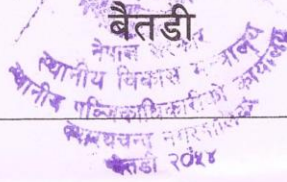 बैतडी
नेपाल
स्थानीय विकास मन्त्रालय
स्थानीय पञ्जिकाधिकारीको कार्यालय
नगरपालिका
बैतडी २०५४